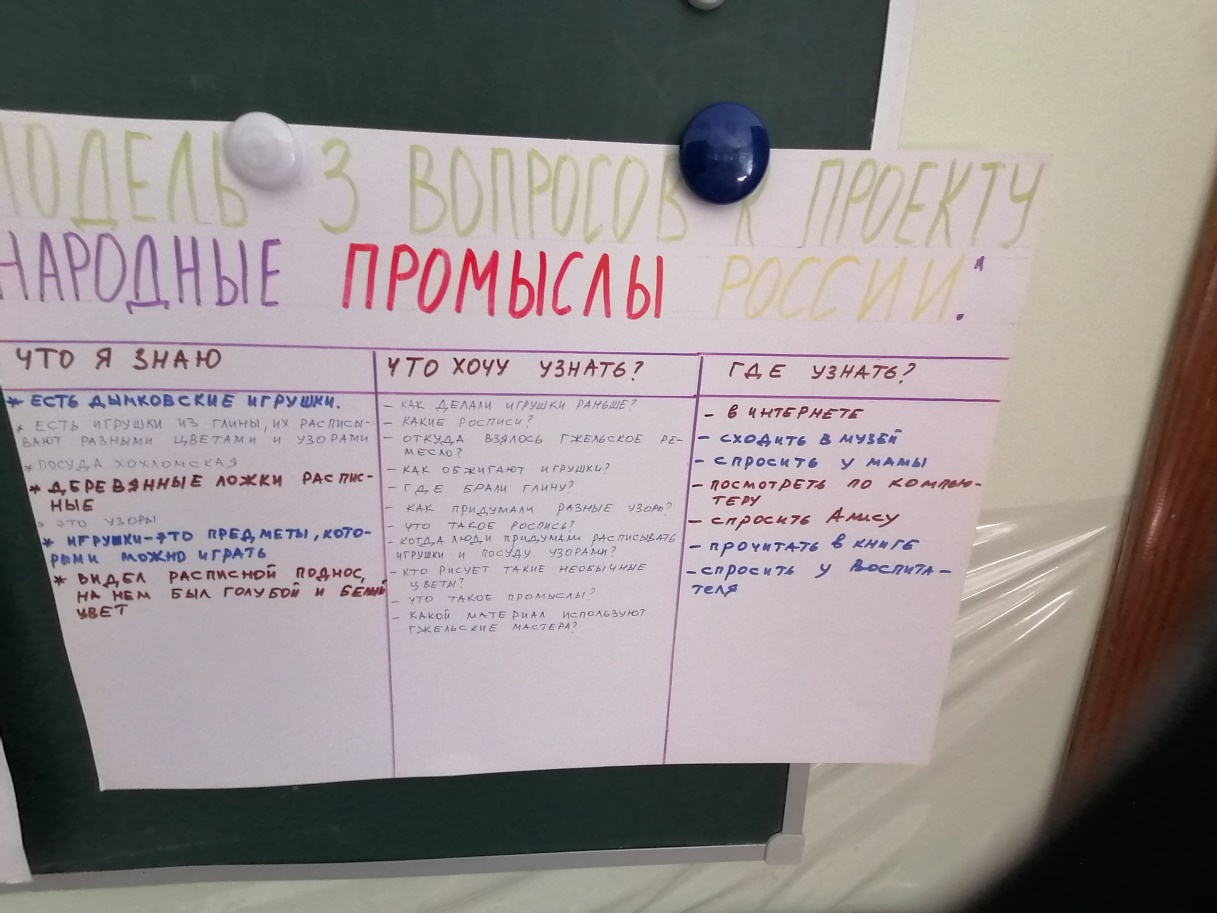 МОДЕЛЬ 3 ВОПРОСОВ К ПРОЕКТУ
НАРОДНЫЕ ПРОМЫСЛЫ РОССИИ."
ЧТО Я ЗНАЮ
* ЕСТЬ ДЫМКОВСКИЕ ИГРУШКИ.
* ЕСТЬ ИГРУШКИ ИЗ ГЛИНЫ, ИХ РАСПИСЫ-
ВАЮТ РАЗНЫМИ ЦВЕТАМИ И УЗОРАМИ
* ПОСУДА ХОХЛОМСКАЯ
* ДЕРЕВЯННЫЕ ЛОЖКИ РАСПИС-
НЫЕ
* ЭТО УЗОРЫ
* ИГРУШКИ-ЭТО ПРЕДМЕТЫ, КОТО-
РЫМИ МОЖНО ИГРАТЬ
* ВИДЕЛ РАСПИСНОЙ ПОДНОС,
НА НЕМ БЫЛ ГОЛУБОЙ И БЕЛЫЙ
ЦВЕТ
ЧТО ХОЧУ УЗНАТЬ?
- КАК ДЕЛАЛИ ИГРУШКИ РАНЬШЕ?
- КАКИЕ РОСПИСИ?
- ОТКУДА ВЗЯЛОСЬ ГЖЕЛЬСКОЕ РЕ-
МЕСЛО?
- КАК ОБЖИГАЮТ ИГРУШКИ?
- ГДЕ БРАЛИ ГЛИНУ?
- КАК ПРИДУМАЛИ РАЗНЫЕ УЗОРЫ?
- ЧТО ТАКОЕ РОСПИСЬ?
- КОГДА ЛЮДИ ПРИДУМАЛИ РАСПИСЫВАТЬ
ИГРУШКИ И ПОСУДУ УЗОРАМИ?
- КТО РИСУЕТ ТАКИЕ НЕОБЫЧНЫЕ
ЦВЕТЫ?
- ЧТО ТАКОЕ ПРОМЫСЛЫ?
- КАКОЙ МАТЕРИАЛ ИСПОЛЬЗУЮТ
ГЖЕЛЬСКИЕ МАСТЕРА?
ГДЕ УЗНАТЬ?
- В ИНТЕРНЕТЕ
- СХОДИТЬ В МУЗЕЙ
- СПРОСИТЬ У МАМЫ
- ПОСМОТРЕТЬ ПО КОМПЬЮ-
ТЕРУ
- СПРОСИТЬ АЛИСУ
- ПРОЧИТАТЬ В КНИГЕ
- СПРОСИТЬ У ВОСПИТА-
ТЕЛЯ